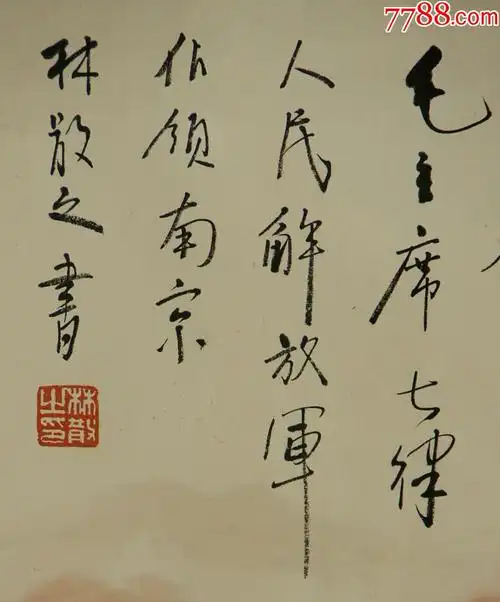 7788.com
毛主席七律
人民解放軍
佔領南京
林散之書
林散之印